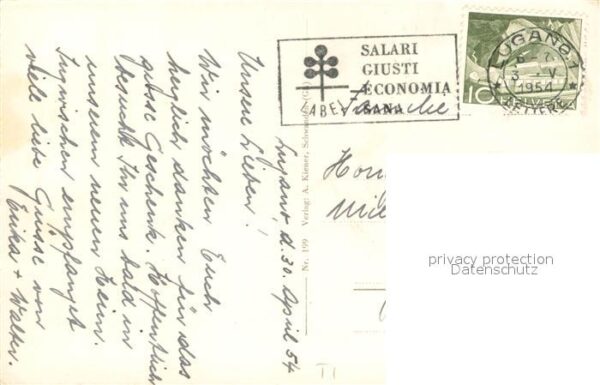 Lugano, d. 30. April 54
Unsere Lieben!
Wir möchten Euch
herzlich danken für das
grosse Geschenk. Hoffentlich
besucht Ihr uns bald in
unserem neuen Heim.
Inzwischen empfanget
viele liebe Grüsse von
Erika + Walter.
Nr. 199 Verlag: A. Kiener,
SALARI
GIUSTI
ECONOMIA
SANA
LABEL
LUGANO 1
3. V
1954
LETTERE
10
HELVETIA
Familie
privacy protection
Datenschutz